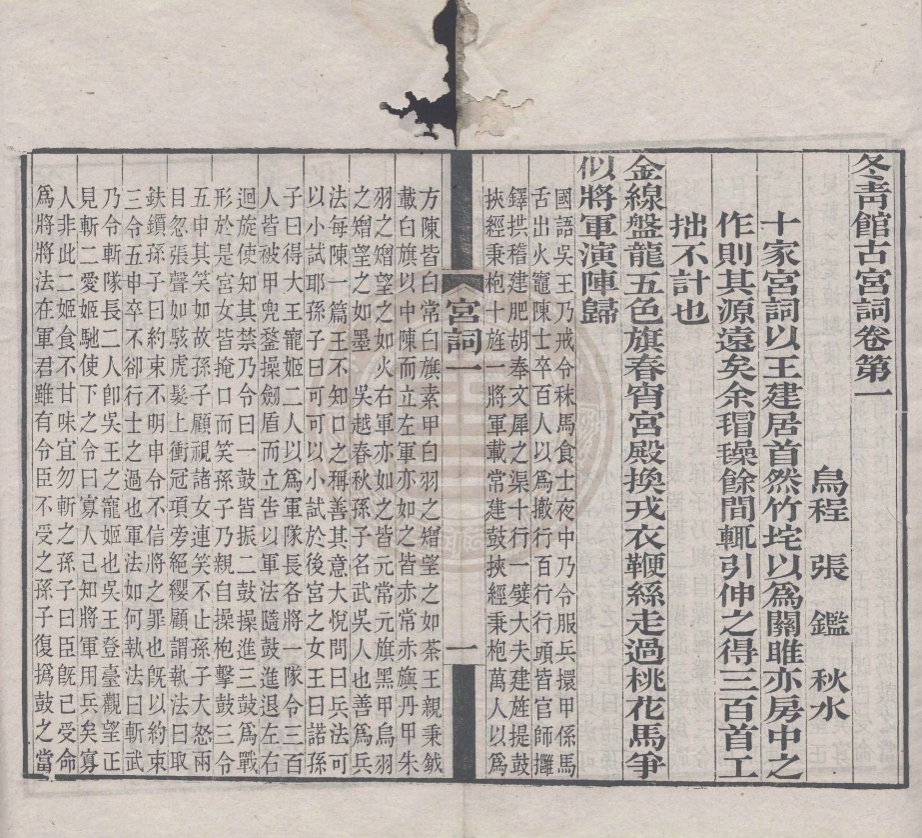 冬靑館古宮詞卷第一
烏程 張 鑑 秋水
十家宮詞以王建居首然竹垞以爲關雎亦房中之
作則其源遠矣余瑁璪餘閒輒引伸之得三百首工
拙不計也
金線盤龍五色旗春宵宮殿換戎衣鞭絲走過桃花馬爭
似將軍演陣歸
國語吳王乃戒令秣馬食士夜中乃令服兵擐甲係馬
舌出火竈陳士卒百人以爲撤行百行行頭皆官師擁
鐸拱稽建肥胡奉文犀之渠十行一嬖大夫建旌提鼓
挾經秉枹十旌一將軍載常建鼓挾經秉枹萬人以爲
宮詞一
一
方陳皆曰常曰旗素甲曰羽之矰望之如荼王親秉鉞
載白旗以中陳而立左軍亦如之皆亦常赤旟丹甲朱
羽之矰望之如火右軍亦如之皆元常元旗黑甲烏羽
之矰望之如墨 吳越春秋孫子名武吳人也善爲兵
法每陳一篇王不知口之稱善其意大悅問曰兵法可
以小試耶孫子曰可可以小試於後宮之女王曰諾孫
子曰得大王寵姬二人以爲軍隊長各將一隊令三百
人皆被甲兜鍪操劍盾而立吿以軍法隨鼓進退左右
迴旋使知其禁乃令曰一鼓皆振二鼓操進三鼓爲戰
形於是宮女皆掩口而笑孫子乃親自操枹擊鼓三令
五申其笑如故孫子顧視諸女連笑不止孫子大怒兩
目忽張聲如駭虎髮上衝冠項旁絕纓顧謂執法曰取
鈇鑕孫子曰約束不明申令不信將之罪也旣以約束
三令五申卒不卻行士之過也軍法如何執法曰斬武
乃令斬隊長二人卽吳王之寵姬也吳王登臺觀望正
見斬二愛姬馳使下之令曰寡人已知將軍用兵矣寡
人非此二姬食不甘味宜勿斬之孫子曰臣旣已受命
爲將將法在軍君雖有令臣不受之孫子復撝鼓之當